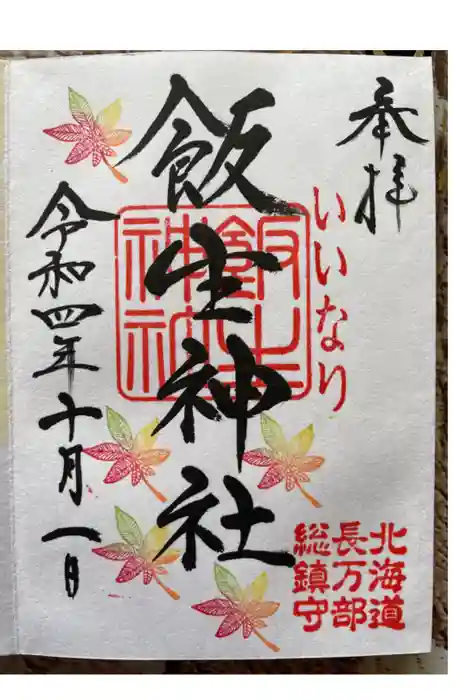 奉拝
いいなり
北海道
長万部
総鎮守
飯生神社
飯生神社
令和四年十月一日